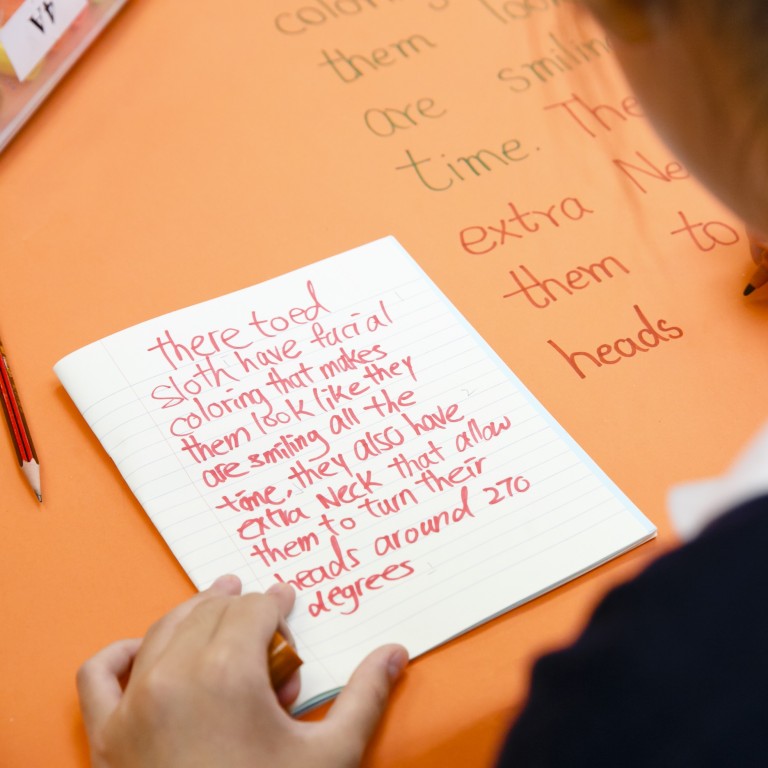 there toed
sloth have facial
coloring that makes
them look like they
are smiling all the
time, they also have
extra Neck that allow
them to turn their
heads around 270
degrees
them
are smilin
time. The
extra Ne
them to
heads
4A